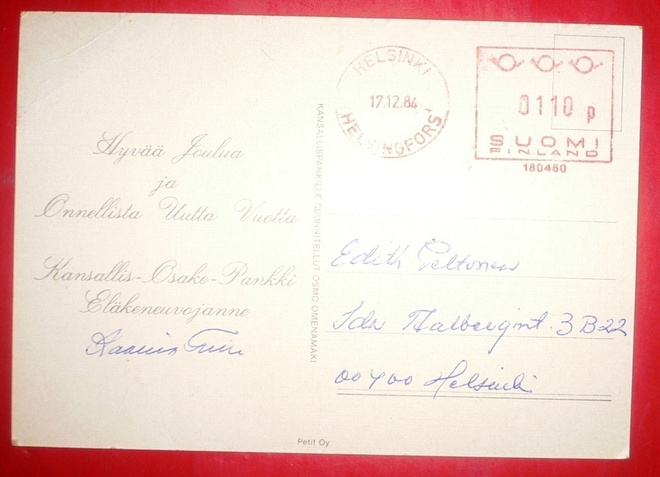 HELSINKI
17.12.84
HELSINGFORS
0110 p
SUOMI
FINLAND
180460
Hyvää Joulua
ja
Onnellista Uutta Vuotta
Kansallis-Osake-Pankki
Eläkeneuvojanne
KANSALLISPANKILLE SUUNNITELLUT OSMO OMENAMÄKI
Edith Peltonen
Ida Aalbergint. 3 B 22
00400 Helsinki
Petit Oy